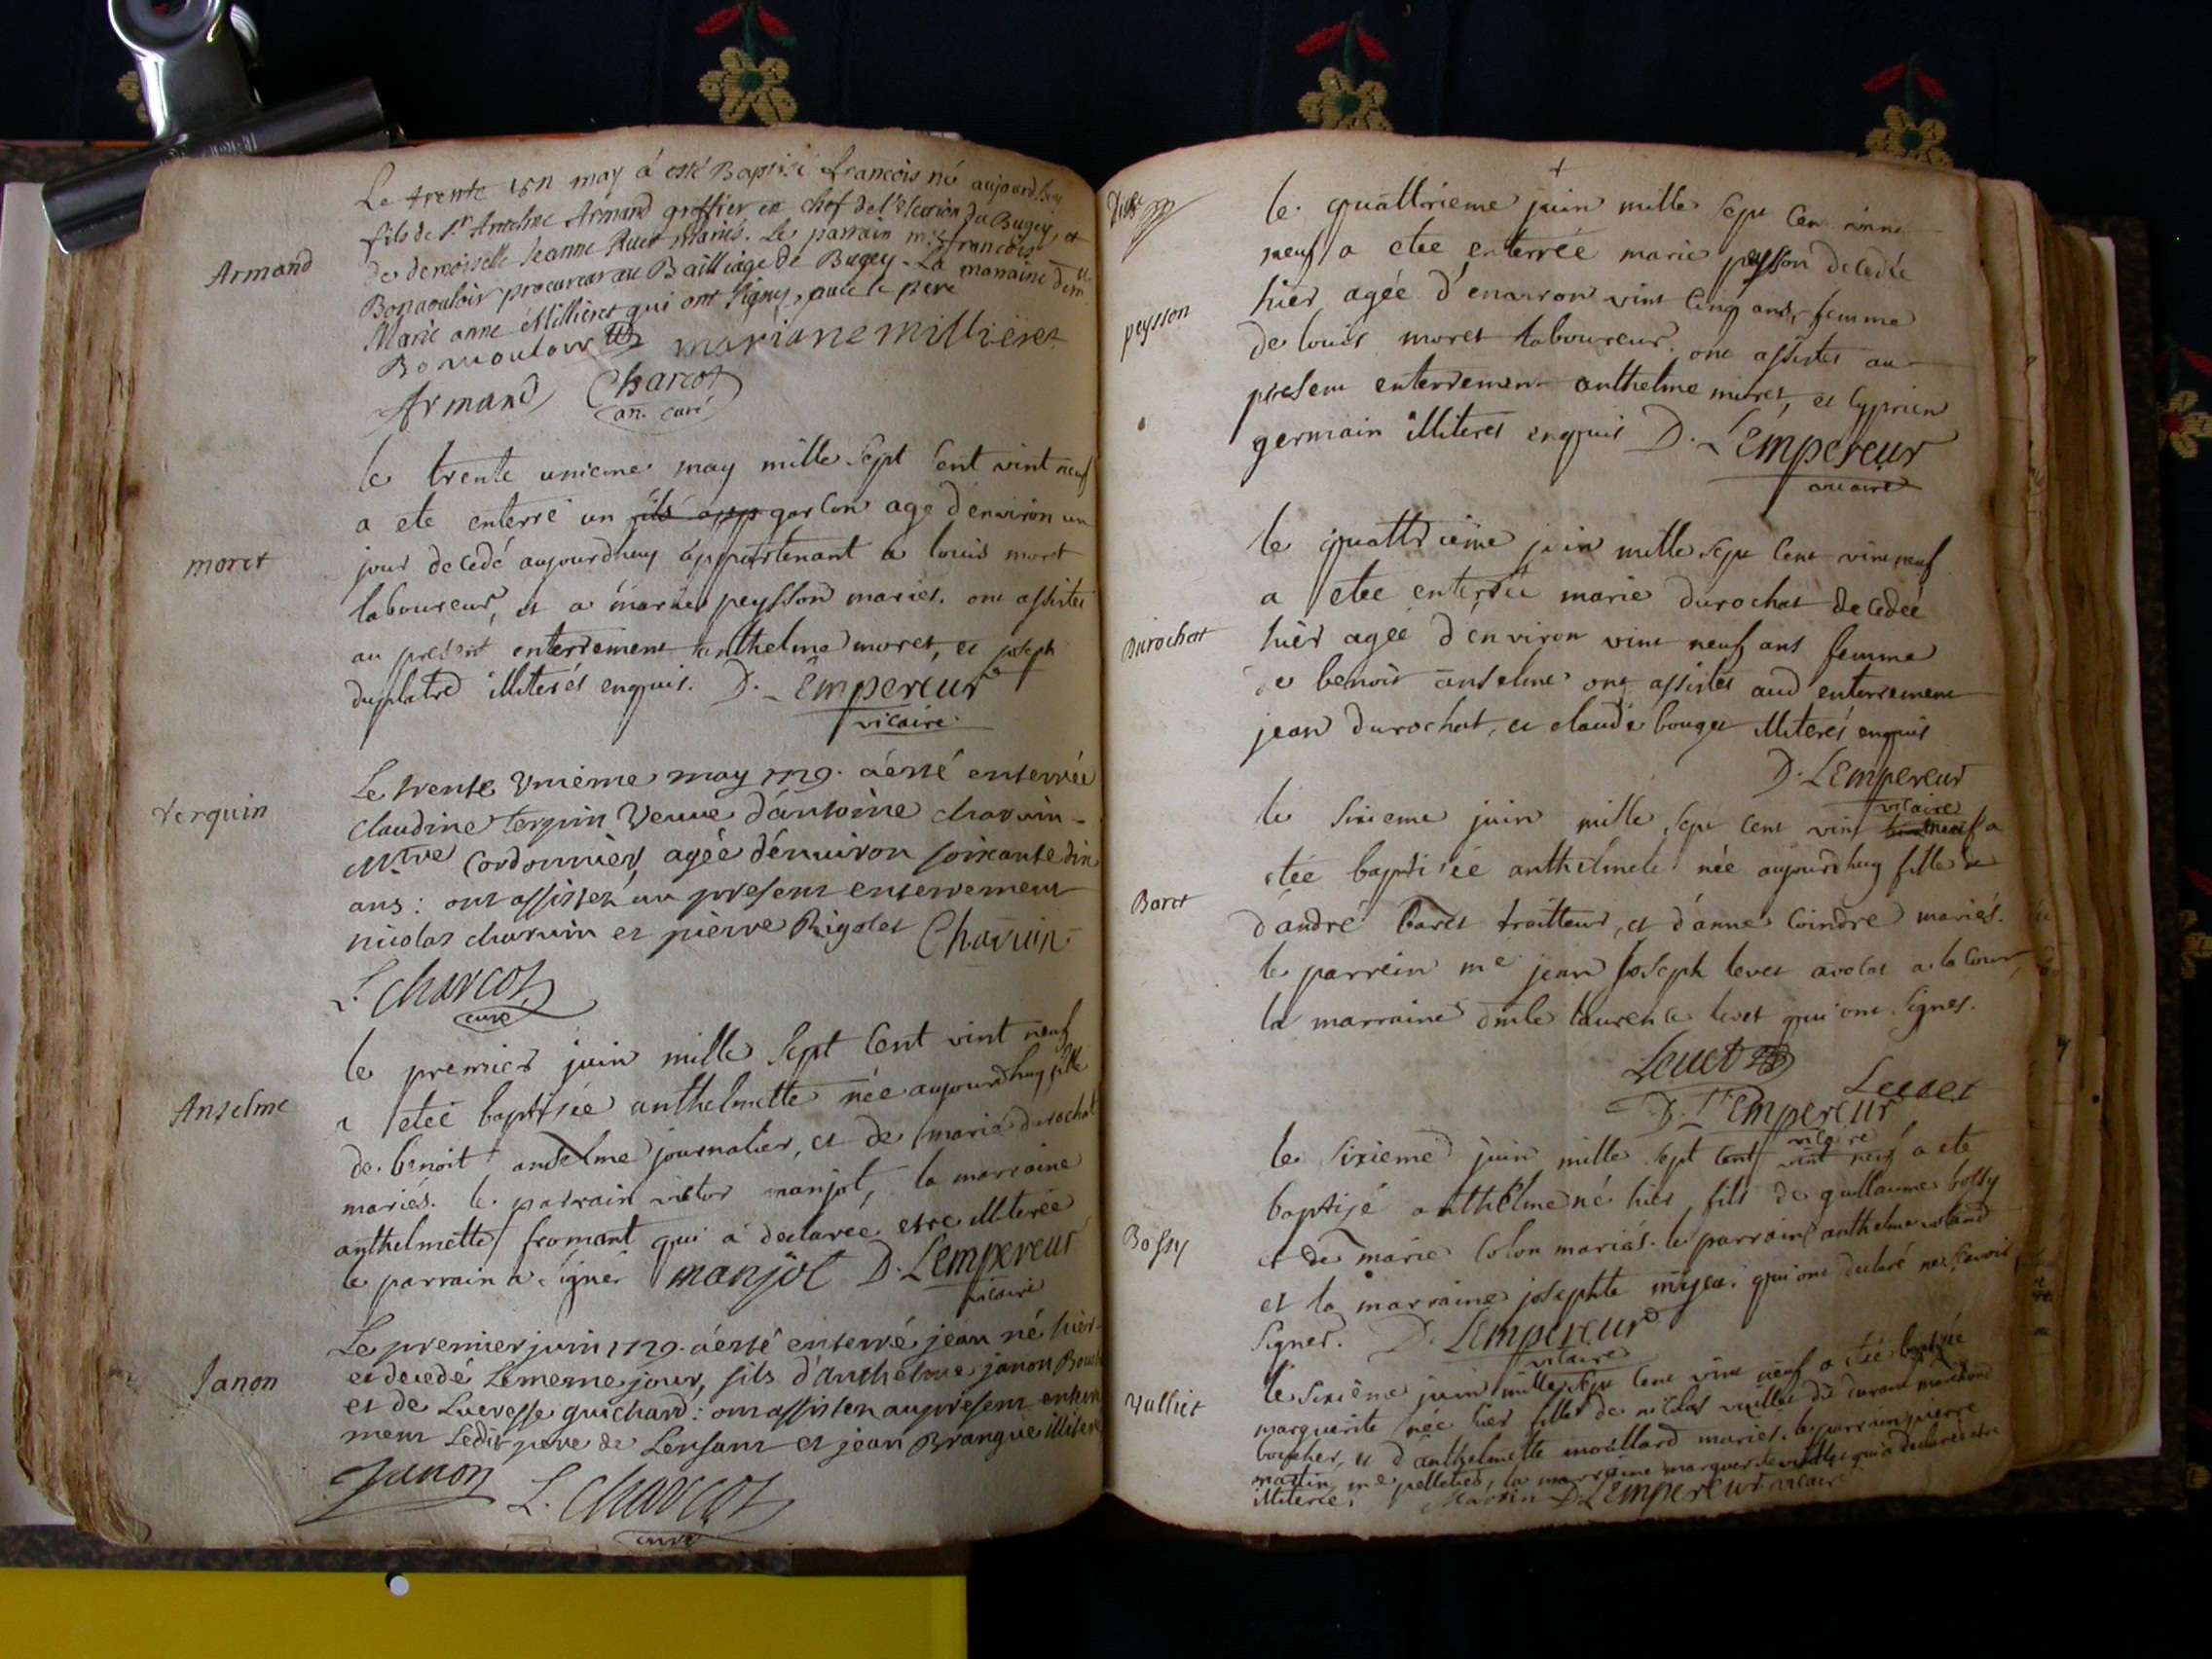 Armand
Le trente un may á esté Baptisé francois né aujourdhuy
fils de Sr Anthelme Armand greffier en chef de l'Election du Bugey, et
de demoiselle Jeanne mariés. Le parrain mre francois
procureur au Bailliage de Bugey. La marraine
Marie anne Millieret qui ont signes, avec le pere
marianemillieret
Armand Charcot
an. curé
moret
le trente unieme may mille sept sent vint neuf
a ete enterré un fils app garson age denviron un
jour decedé aujourdhuy appartenant a louis moret
laboureur, et a marie peysson mariés. ont assistes
au present enterrement anthelme moret, et joseph
duplatre illiterés enquis. D. Lempereur
vicaire
terquin
Le trente Unieme may 1729. a esté enterrée
claudine terquin Veuve d'antoine charvin
Mtre Cordonnier, agée d'enuiron soixante dix
ans: ont assistez au present enterrement
nicolas charvin et pierre Rigolet Charvin
L. Charcot
curé
Anselme
le premier juin mille sept cent vint neuf
a etee baptisée anthelmette née aujourdhuy fille
de benoit anselme journalier, et de marie durochat
mariés. le parrain victor manjot, la marraine
anthelmette fromant qui a declaree estre illiterée
le parrain a signé manjot D. Lempereur
vicaire
Janon
Le premier juin 1729. a esté enterré jean né hier
et decedé Le meme jour, fils d'anthelme janon
et de Lucresse guichard: ont assisten au present enterre
ment Ledit pere de Lenfant et jean Brangue illitere
Janon L. Charcot
curé
+
peysson
le quattrieme juin mille sept cen vint
neuf a etee enterrée marie peysson decedée
hier agée d'environ vint cinq ans, femme
de louis moret laboureur. ont assistes au
present enterrement anthelme moret, et cyprien
germain illiteres enquis D. Lempereur
vicaire
Durochat
le quattrieme juin mille sept cent vint neuf
a etee enterrée marie durochat decedée
hier agée d'environ vint neuf ans femme
de benoit anselme ont assistes aud enterrement
jean durochat, et claude bouget illiterés enquis
D. Lempereur
vicaire
Baret
le sixieme juin mille sept cent vint neuf a
etée baptisée anthelmete née aujourdhuy fille de
d'andré baret traitteur, et d'anne Coindre mariés.
le parrein me jean Joseph levet avocat a la Cour,
la marraine dmle laurence levet qui ont signes.
Levet
Levet
D. Lempereur
vicaire
Bossy
le sixieme juin mille sept cent vint neuf a ete
baptisé anthelme né hier fils de guillaume bossy
et de marie Colon mariés. le parrain anthelme
et la marraine josephte qui ont declaré ne scavoir
signer. D. Lempereur
vicaire
Vulliet
le sixième juin mille sept cent vint neuf a été baptisée
marguerite née hier fille de nicolas vulliet dit durant marchand
boucher, et d'anthelmette mariés. le parrain pierre
martin, me pelletier, la marraine marguerite vulliet qui a declaré etre
illiterée. Martin D. Lempereur vicaire